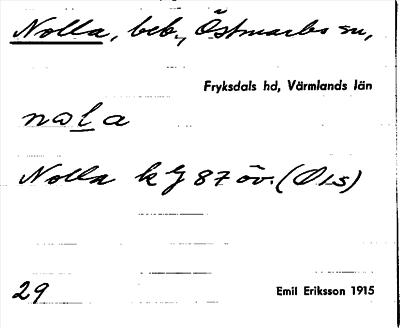 Nolla, beb., Östmarks sn,
Fryksdals hd, Värmlands län
nola
Nolla kg 87 öv. (Ö15)
29
Emil Eriksson 1915